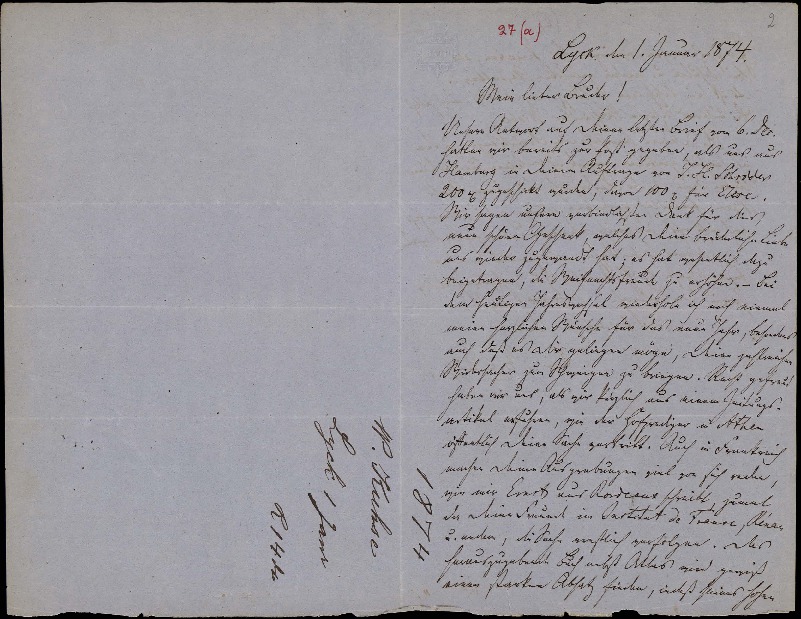 27(a)
2
Lyck, den 1. Januar 1874.
Mein lieber Bruder!
Unsere Antwort auf Deinen letzten Brief vom 6. Dec.
hatten wir bereits zur Post gegeben, als uns aus
Hamburg in Deinem Auftrage von J. H. Schröder
200 zugeschickt wurden, davon 100 für Elise.
Wir sagen unsern verbindlichsten Dank für das
neue schöne Geschenk, welches Deine brüderliche Liebe
uns wieder zugewandt hat; es hat wesentlich dazu
beigetragen, die Weihnachtsfreude zu erhöhen. – Bei
dem heutigen Jahreswechsel wiederhole ich noch einmal
meine herzlichen Wünsche für das neue Jahr, besonders
auch daß es Dir gelingen möge, Deine zahlreichen
Widersacher zum Schweigen zu bringen. Recht gefreut
haben wir uns, als wir kürzlich aus einem Zeitungs-
artikel erfuhren, wie der Hofprediger in Athen
öffentlich Deine Sache vertritt. Auch in Frankreich
machen Deine Ausgrabungen viel von sich reden,
wie mir Ernst aus Bordeaux schreibt, zumal
da Deine Freunde im Institut de France, Renan
u. andere, die Sache verfolgen. Das
herauszugebende Buch nebst Atlas wird gewiß
einen starken Absatz finden, indeß seines hohen
1874
W. Kuhse
Lyck 1 Janr